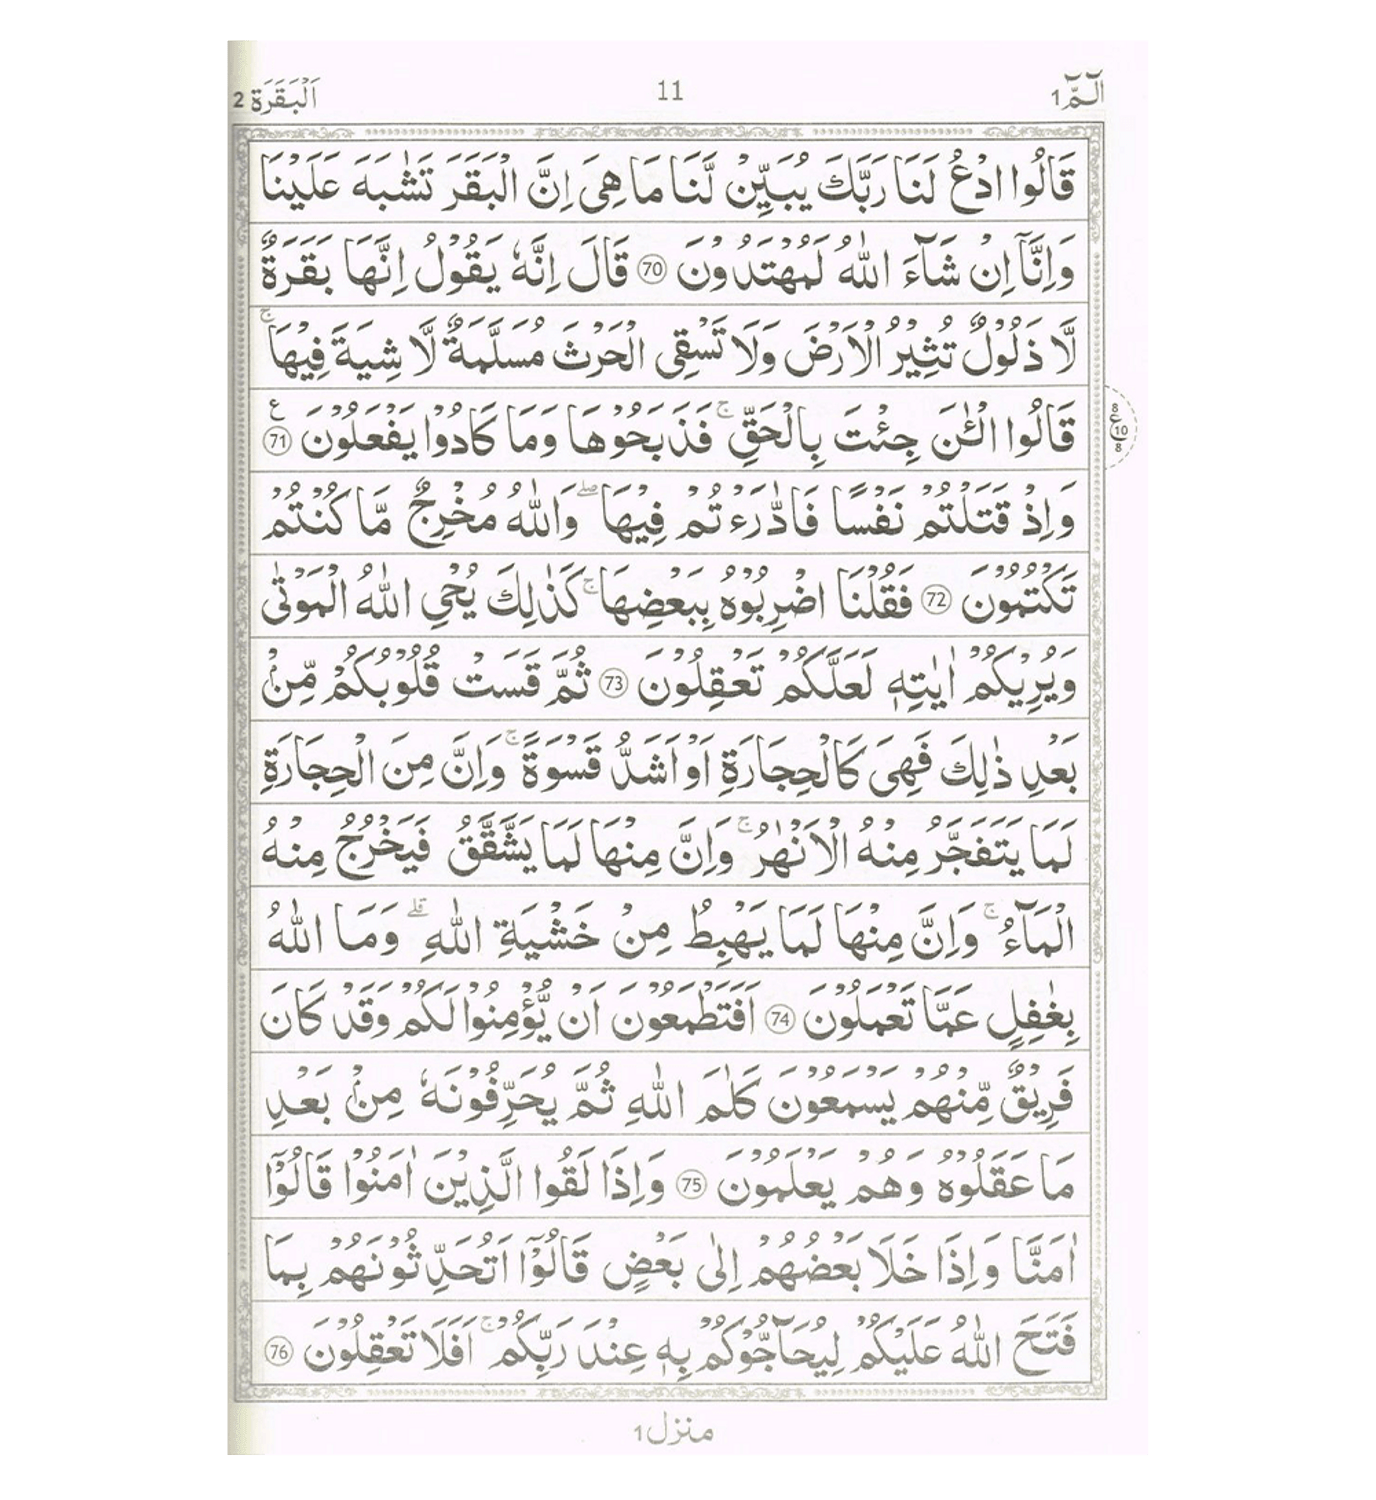 الٓمّٓ 1
11
اَلْبَقَرَة 2
قَالُوا ادْعُ لَنَا رَبَّكَ يُبَيِّنْ لَّنَا مَا هِىَ اِنَّ الْبَقَرَ تَشٰبَهَ عَلَيْنَا
وَاِنَّآ اِنْ شَآءَ اللّٰهُ لَمُهْتَدُوْنَ 70 قَالَ اِنَّهٗ يَقُوْلُ اِنَّهَا بَقَرَةٌ
لَّا ذَلُوْلٌ تُثِيْرُ الْاَرْضَ وَلَا تَسْقِى الْحَرْثَ مُسَلَّمَةٌ لَّا شِيَةَ فِيْهَا ۚ
قَالُوا الْـٰٔنَ جِئْتَ بِالْحَقِّ ۚ فَذَبَحُوْهَا وَمَا كَادُوْا يَفْعَلُوْنَ ع 71
8 ع 10 8
وَاِذْ قَتَلْتُمْ نَفْسًا فَادّٰرَءْتُمْ فِيْهَا ۖ وَاللّٰهُ مُخْرِجٌ مَّا كُنْتُمْ
تَكْتُمُوْنَ 72 فَقُلْنَا اضْرِبُوْهُ بِبَعْضِهَا ۚ كَذٰلِكَ يُحْىِ اللّٰهُ الْمَوْتٰى
وَيُرِيْكُمْ اٰيٰتِهٖ لَعَلَّكُمْ تَعْقِلُوْنَ 73 ثُمَّ قَسَتْ قُلُوْبُكُمْ مِّنْۢ
بَعْدِ ذٰلِكَ فَهِىَ كَالْحِجَارَةِ اَوْ اَشَدُّ قَسْوَةً ۚ وَاِنَّ مِنَ الْحِجَارَةِ
لَمَا يَتَفَجَّرُ مِنْهُ الْاَنْهٰرُ ۚ وَاِنَّ مِنْهَا لَمَا يَشَّقَّقُ فَيَخْرُجُ مِنْهُ
الْمَآءُ ۚ وَاِنَّ مِنْهَا لَمَا يَهْبِطُ مِنْ خَشْيَةِ اللّٰهِ ۗ وَمَا اللّٰهُ
بِغٰفِلٍ عَمَّا تَعْمَلُوْنَ 74 اَفَتَطْمَعُوْنَ اَنْ يُّؤْمِنُوْا لَكُمْ وَقَدْ كَانَ
فَرِيْقٌ مِّنْهُمْ يَسْمَعُوْنَ كَلٰمَ اللّٰهِ ثُمَّ يُحَرِّفُوْنَهٗ مِنْۢ بَعْدِ
مَا عَقَلُوْهُ وَهُمْ يَعْلَمُوْنَ 75 وَاِذَا لَقُوا الَّذِيْنَ اٰمَنُوْا قَالُوْٓا
اٰمَنَّا وَاِذَا خَلَا بَعْضُهُمْ اِلٰى بَعْضٍ قَالُوْٓا اَتُحَدِّثُوْنَهُمْ بِمَا
فَتَحَ اللّٰهُ عَلَيْكُمْ لِيُحَآجُّوْكُمْ بِهٖ عِنْدَ رَبِّكُمْ ۚ اَفَلَا تَعْقِلُوْنَ 76
منزل 1